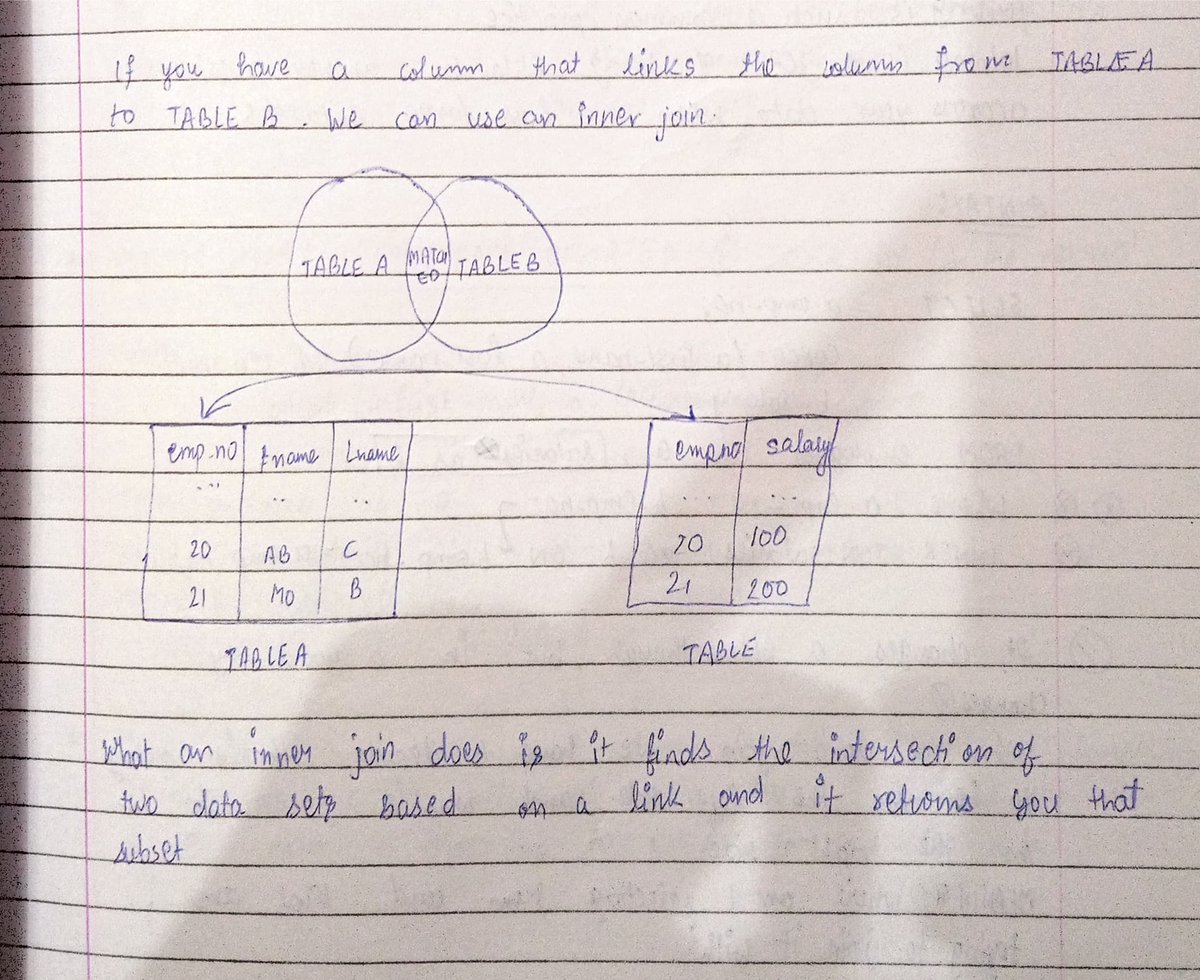 If you have a column that links the column from TABLE A
to TABLE B. We can use an inner join.
TABLE A MATCH TABLE B
ED
emp.no fname Lname
... .. ..
20 AB C
21 MO B
TABLE A
emp.no salary
... ...
20 100
21 200
TABLE
What an inner join does is it finds the intersection of
two data sets based on a link and it returns you that
subset